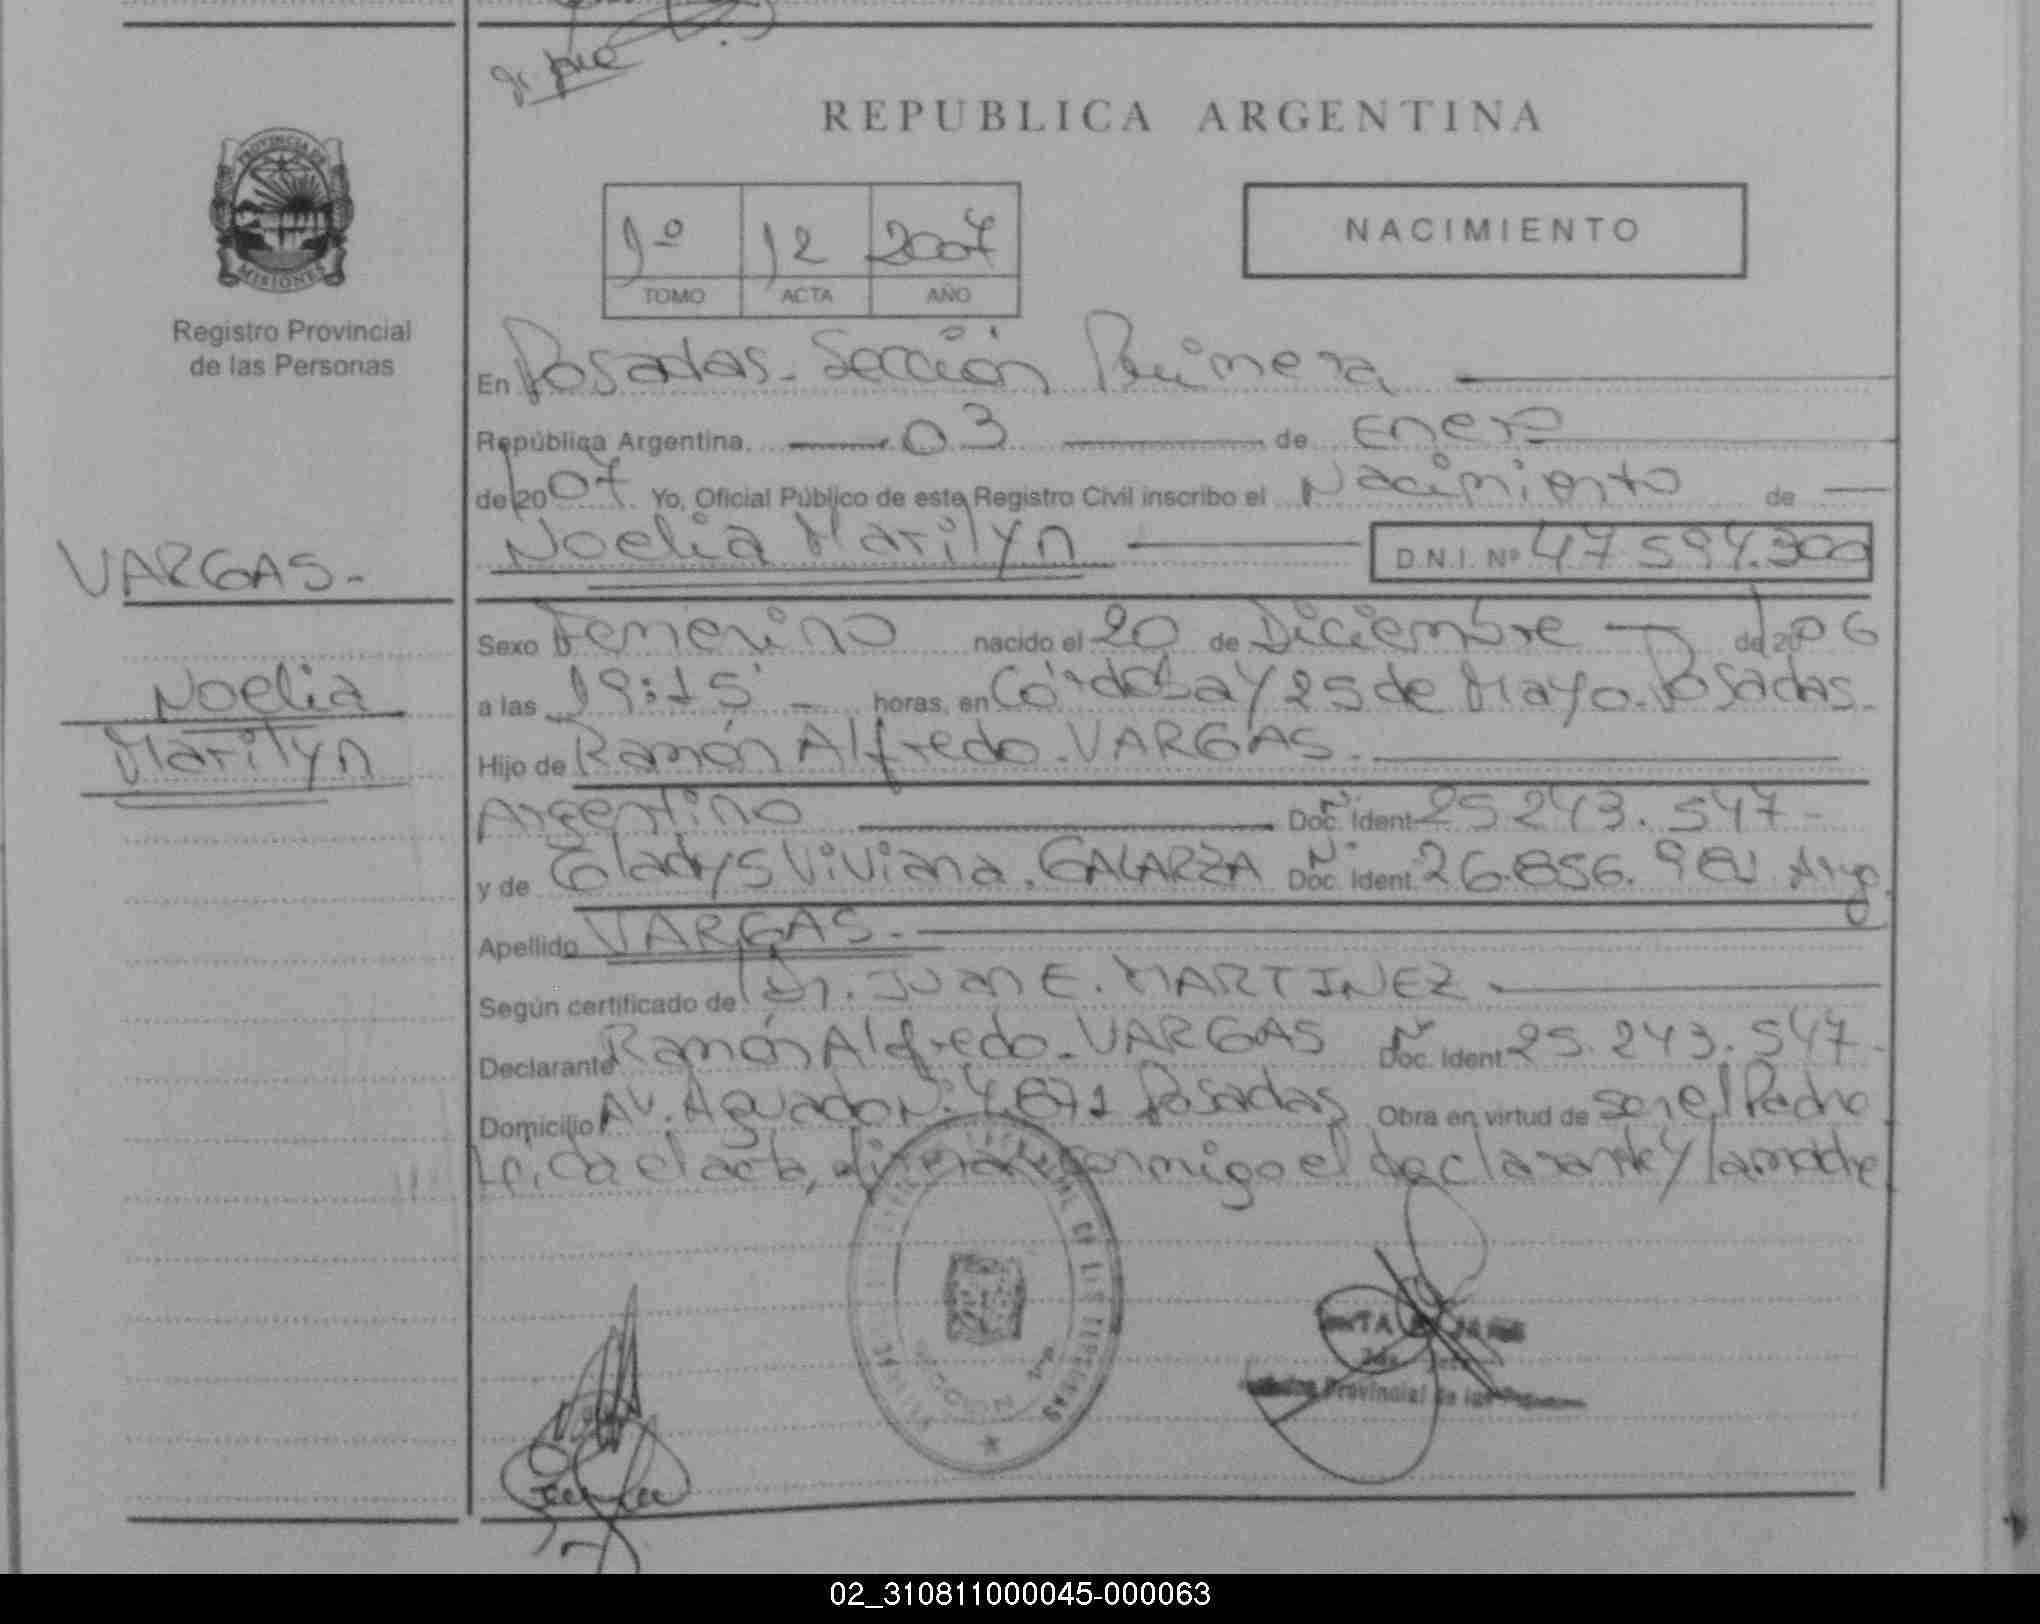 REPUBLICA ARGENTINA
PROVINCIA DE
MISIONES
Registro Provincial
de las Personas
1º 12 2007
TOMO ACTA AÑO
NACIMIENTO
En Posadas - Sección Primera
República Argentina, 03 de Enero
de 2007 Yo, Oficial Público de este Registro Civil inscribo el Nacimiento de
Noelia Marilyn D.N.I. Nº 47.594.300
VARGAS-
Noelia
Marilyn
Sexo Femenino nacido el 20 de Diciembre de 2006
a las 19:15' horas, en Córdoba y 25 de Mayo-Posadas-
Hijo de Ramón Alfredo-VARGAS-
Argentino Doc. Ident Nº 25 243.547-
y de Gladys Viviana. GALARZA Doc. Ident. Nº 26.856.981 Arg.
Apellido VARGAS-
Según certificado de Dr. Juan E. MARTINEZ
Declarante Ramón Alfredo-VARGAS Doc. Ident Nº 25.243.547-
Domicilio Av. Aguado Nº 4.871 Posadas Obra en virtud de ser el Padre
Leída el acta, firman conmigo el declarante y la madre
Provincial de las
02_310811000045-000063